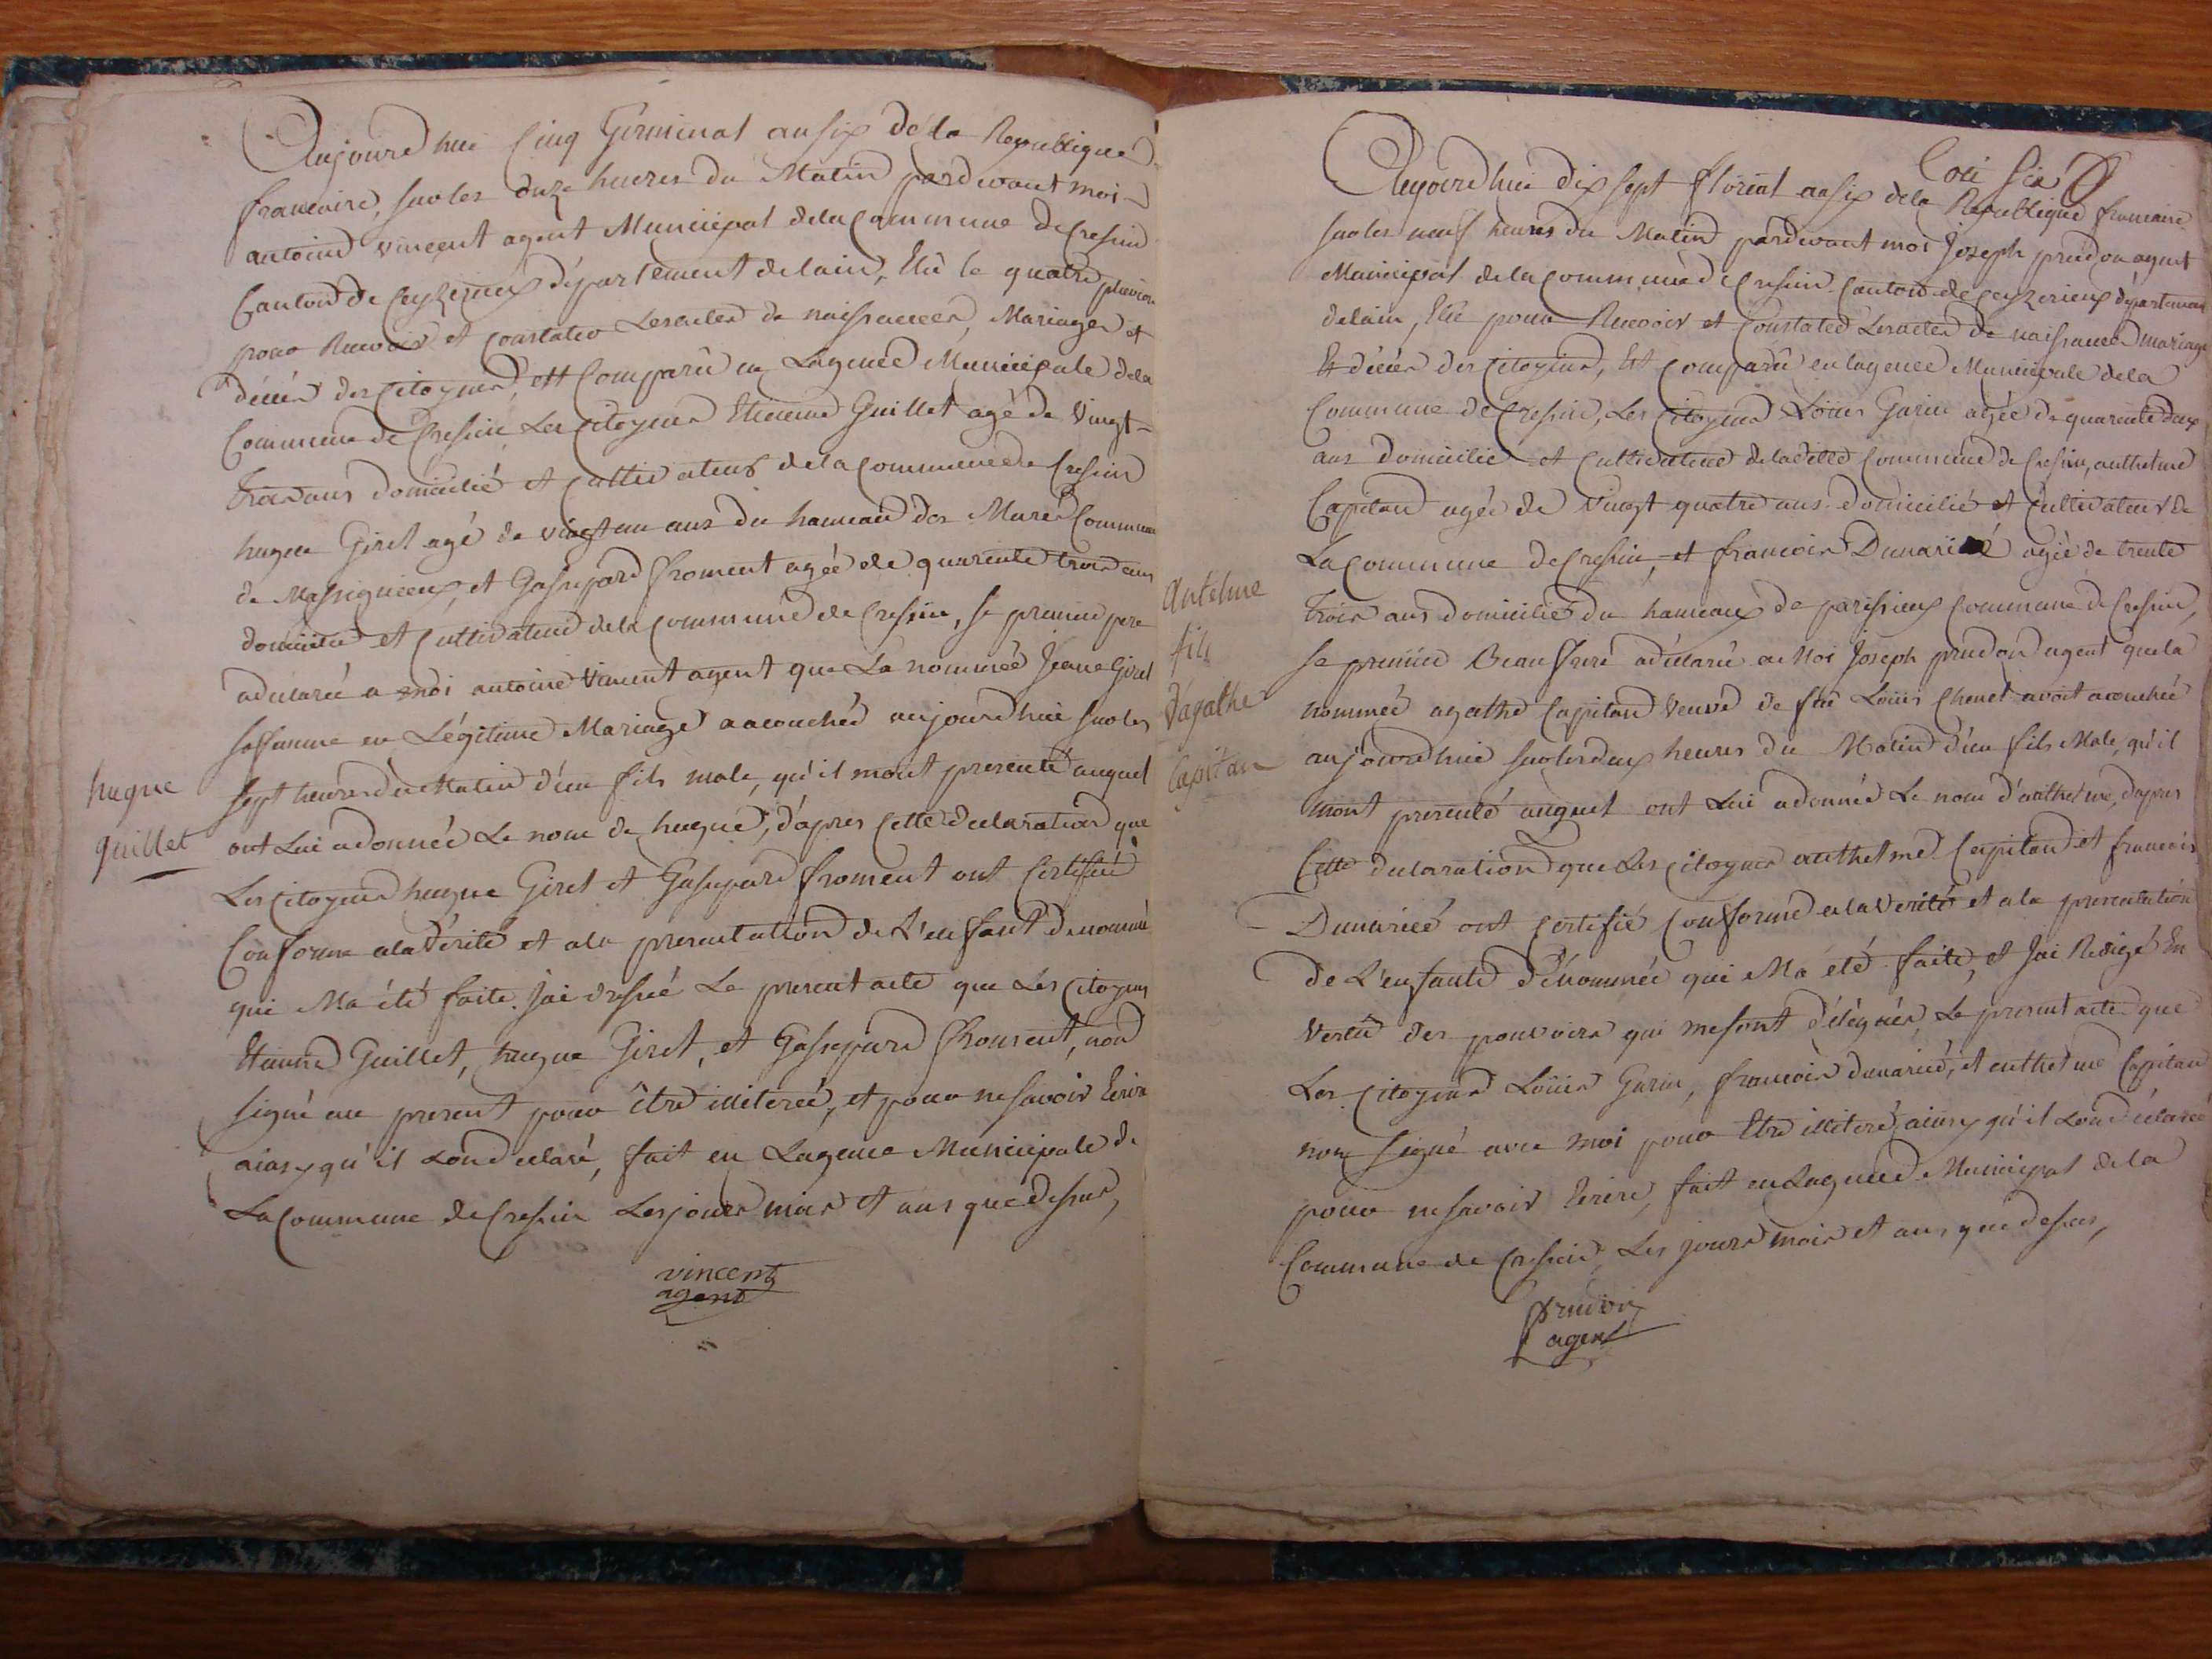 Aujourd hui Cinq Germinal an six de la Republique
francaire, sur les onze heures du Matin pardevant moi
antoine vincent agent Municipal dela Commune de Cressin
Canton de Ceyzerieux département de lain, Elu le quatre pluvios
pour Recevoir et Constater Les actes de naissances, Mariages et
décès des Citoyens, ett Comparu en Lagence Municipale dela
Commune de Cressin Les Citoyens Etienne Guillet agé de Vingt=
trois ans domicilié et Cultivateur de la Commune de Cressin
hugue Giret agé de vingt un ans du hameau des Mures Commune
de Massignieux, et Gaspard froment agée de quarente trois ans
domicilié et Cultivateur dela Commune de Cressin, le premier pere
adeclarée a moi antoine Vincent agent que La nommée Jeane Giret
saffamme en Légitime Mariage aacouchée aujourd'hui sur les
sept heures du Matin d'un fils male, qu'il mont presenté auquel
ont Lui adonnée Le nom de hugue, d'apres Cette declaration que
Les Citoyens hugue Giret et Gaspard froment ont Certifiée
Conforme ala Vérité et ala presentation de L'enfant denommé
qui Ma été faite. Jai dressé Le present acte que Les Citoyens
Etienne Guillet, hugue Giret, et Gaspard froment, non
signé au present pour être illiteré, et pour ne savoir Ecrire
ainsy qu'il Lon declaré, fait en Lagence Municipale de
La Commune de Cressin Les jours mois et ans que dessus,
vincent
agent
hugue
guillet
Coté Six
Aujourd hui dix sept floréal an six de la Republique francaire
sur les neuf heures du Matin pardevant moi Joseph prudon agent
Municipal de la Commune de Cressin Canton de Ceyzerieux département
delain, Elu pour Recevoir et Constater Les actes de naissances mariage
Et décès des Citoyens, Et Comparu en lagence Municipale dela
Commune de Cressin, Les Citoyens Loüis Garin agée de quarente deux
ans domicilié et Cultivateur de ladite Commune de Cressin, anthelme
Capitan agée de Vingt quatre ans domicilié et Cultivateur de
La Commune de Cressin, et francois Dunarié agée de trente
trois ans domicilié du hameaux de parissieux Commune de Cressin,
Le premier Beau frere adeclaré a Moi Joseph prudon agent que la
nommée agathe Capitan Veuve de feu Loüis Chenet avoit acouchée
aujourd hui sur les deux heures du Matin d'un fils Male, qu'il
mont presenté auquel ont Lui adonnée Le nom d'anthelme, dapres
Cette declaration que Les Citoyens anthelme Capitan et francois
Dunariée ont Certifié Conforme ala Verité et ala presentation
de L'enfant dénommée qui Ma été faite, et Jai Redigé En
Vertû des pouvoirs qui me sont délégués, Le present acte que
Les Citoyens Loüis Garin, francois dunarié, et anthelme Capitan
non signé avec moi pour Etre illiteré, ainsy qu'il Lon déclaré
pour ne savoir Ecrire, fait en Lagence Municipal dela
Commune de Cressin, Les jours mois et ans que dessus,
prudon
agent
antelme
fils
d'agathe
Capitan